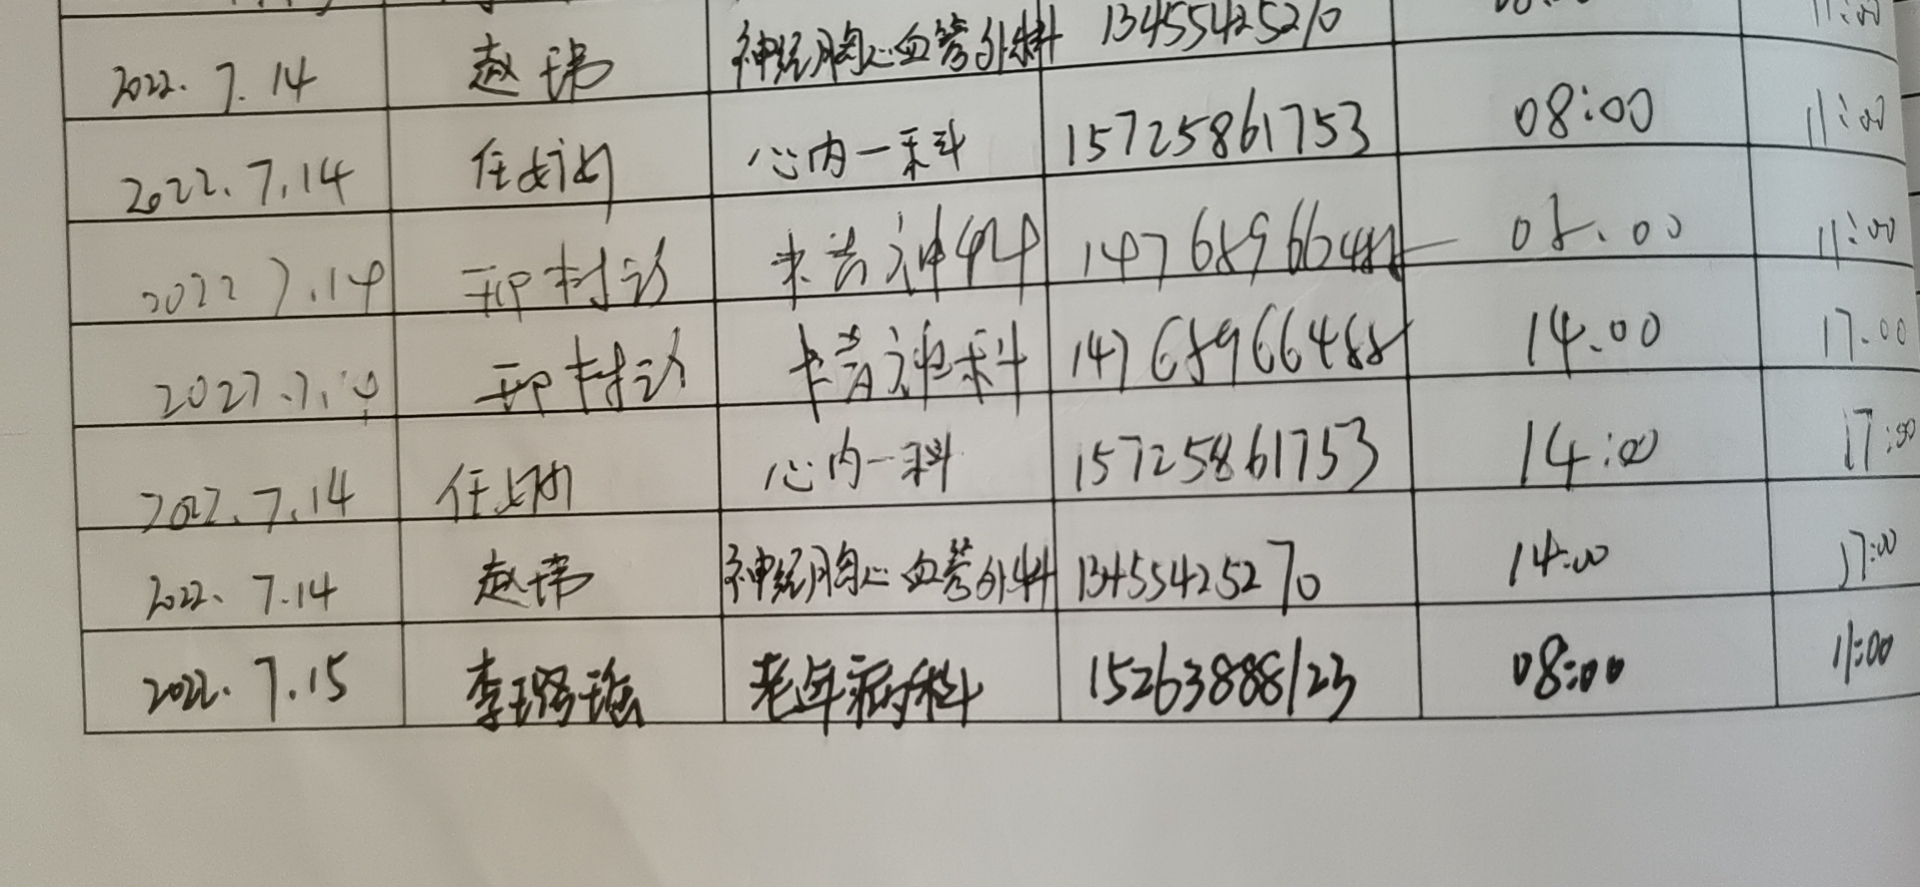 2022.7.14 赵玮 神经胸心血管外科 13455425270 08:00 11:00
2022.7.14 任 心内一科 15725861753 08:00 11:00
2022 7.14 神科 14768966488 08.00 11:00
2022.7.14 神科 14768966488 14.00 17.00
2022.7.14 任 心内一科 15725861753 14:00 17:00
2022.7.14 赵玮 神经胸心血管外科 13455425270 14:00 17:00
2022.7.15 李璐瑶 老年病科 15263888123 08:00 11:00